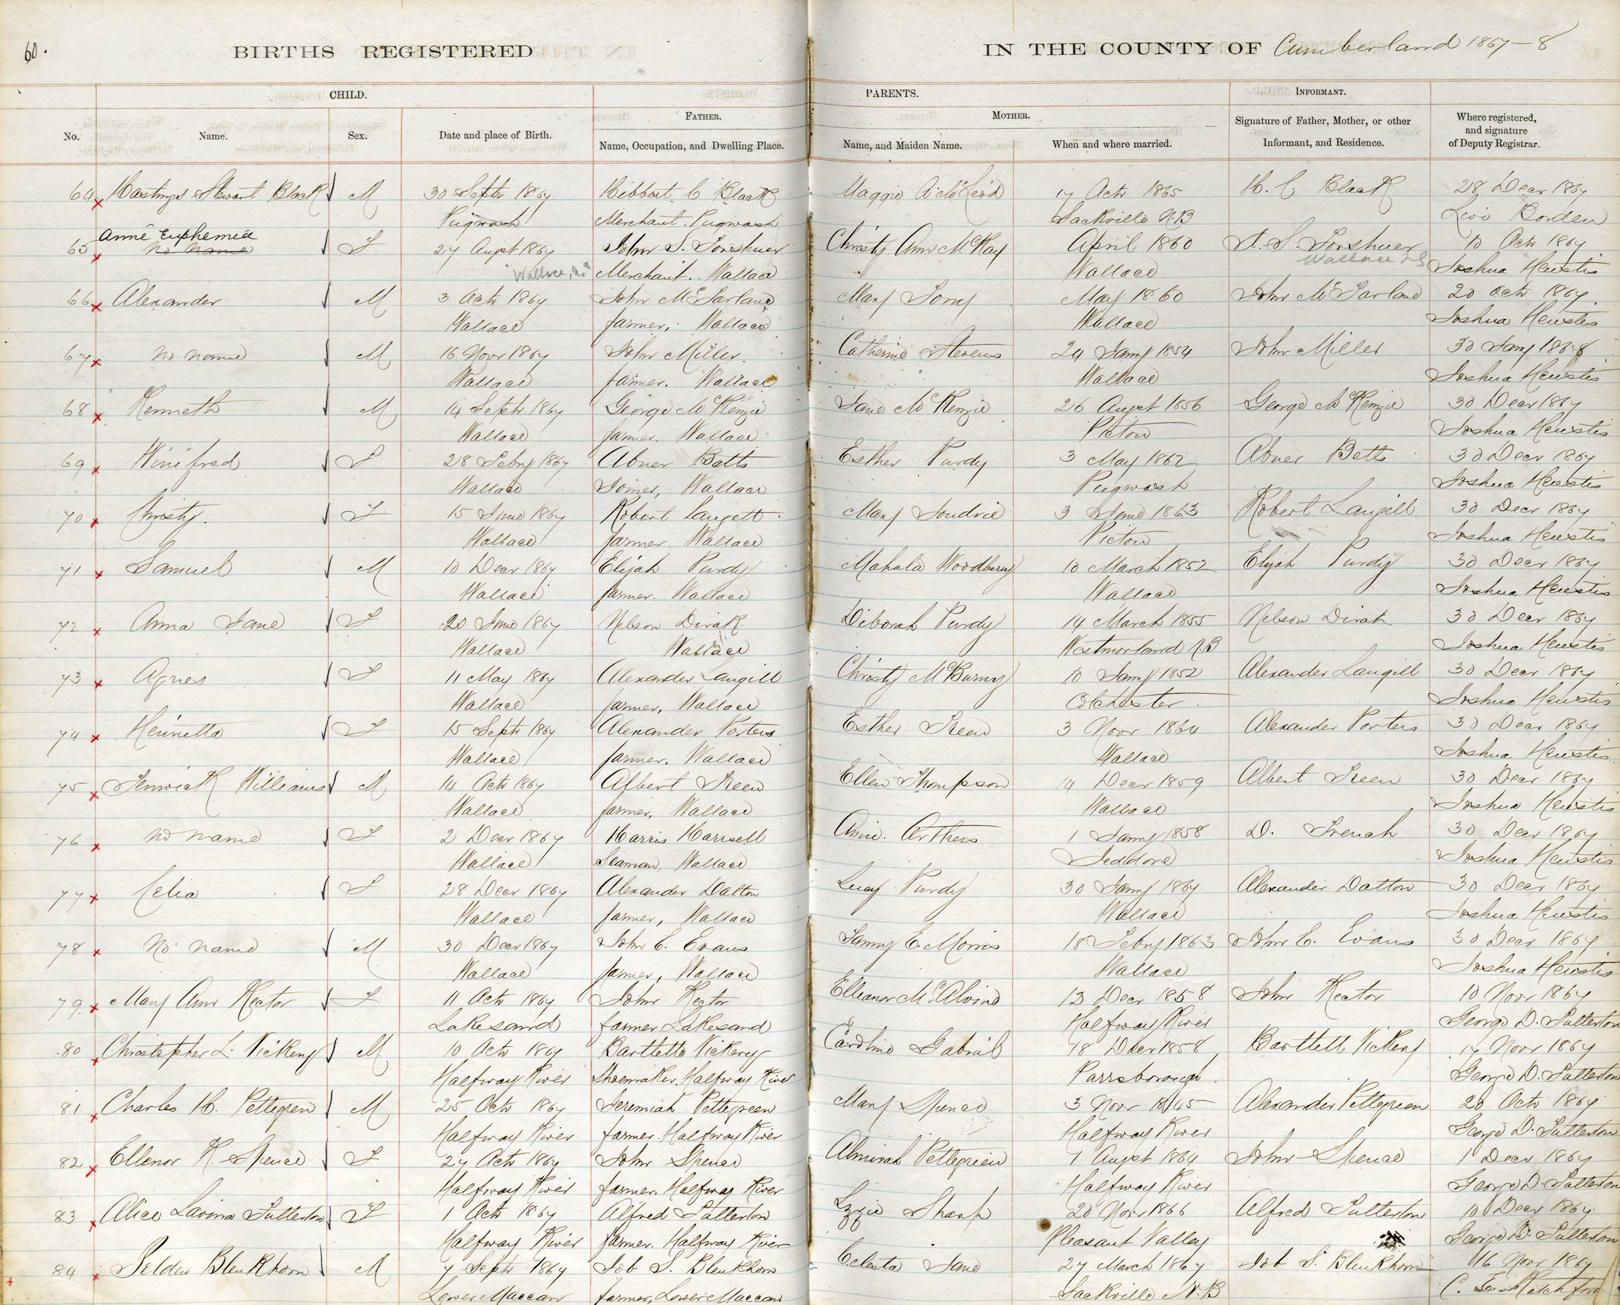 60.
BIRTHS REGISTERED IN THE COUNTY OF Cumberland 1867-8
CHILD. PARENTS. INFORMANT.
FATHER. MOTHER.
No. Name. Sex. Date and place of Birth. Name, Occupation, and Dwelling Place. Name, and Maiden Name. When and where married. Signature of Father, Mother, or other Informant, and Residence. Where registered, and signature of Deputy Registrar.
64 Hastings Stewart Black M 30 Septr 1867 Hibbert C Black Maggie A McLeod 17 Octr 1865 H. C Black 28 Decr 1867
Pugwash Merchant Pugwash Sackville N.B Levi Borden
Anne Euphemia
65 No name F 27 Augst 1867 John S. Forshner Christy Ann McKay April 1860 J. S Forshner 10 Octr 1867
Wallace, N.S Merchant. Wallace Wallace Wallace NS Joshua Heustis
66 Alexander M 3 Octr 1867 John McFarlane Mary Tony May 1860 John McFarland 20 Octr 1867.
Wallace farmer, Wallace Wallace Joshua Heustis
67 no name M 16 Novr 1867 John Miller. Catherine Stevens 24 Jany 1854 John Miller 30 Jany 1868
Wallace farmer. Wallace Wallace Joshua Heustis
68 Kenneth M 14 Septr 1867 George McKenzie Jane McKenzie 26 Augst 1856 George McKenzie 30 Decr 1867
Wallace farmer. Wallace Pictou Joshua Heustis
69 Winifred F 28 Febry 1867 Abner Betts Esther Purdy 3 May 1862 Abner Betts 30 Decr 1867
Wallace Joiner, Wallace Pugwash Joshua Heustis
70 Christy. F 15 June 1867 Robert Langett Mary Joudrie 3 June 1863 Robert Langill 30 Decr 1867
Wallace farmer. Wallace Pictou Joshua Heustis
71 Samuel M 10 Decr 1867 Elijah Purdy Mahala Woodbury 10 March 1852 Elijah Purdy 30 Decr 1867
Wallace farmer. Wallace Wallace Joshua Heustis
72 Anna Jane F 20 June 1867 Nelson Dirak Deborah Purdy 14 March 1855 Nelson Dirah 30 Decr 1867
Wallace Wallace Westmorland N.B Joshua Heustis
73 Agnes F 11 May 1867 Alexander Langill Christy McBurney 10 Jany 1852 Alexander Langill 30 Decr 1867
Wallace farmer, Wallace Colchester Joshua Heustis
74 Henrietta F 15 Septr 1867 Alexander Porters Esther Treen 3 Novr 1864 Alexander Porters 30 Decr 1867
Wallace farmer, Wallace Wallace Joshua Heustis
75 Fenwick Williams M 14 Octr 1867 Albert Treen Ellen Thompson 14 Decr 1859 Albert Treen 30 Decr 1867
Wallace farmer, Wallace Wallace Joshua Heustis
76 no name F 2 Decr 1867 Harris Harwell Amie Arthurs 1 Jany 1858 D. French 30 Decr 1867
Wallace Seaman, Wallace Jeddore Joshua Heustis
77 Celia F 28 Decr 1867 Alexander Dalton Lucy Purdy 30 Jany 1867 Alexander Datton 30 Decr 1867
Wallace farmer, Wallace Wallace Joshua Heustis
78 No name M 30 Decr 1867 John C. Evans Fanny E. Morris 18 Febry 1863 John C. Evans 30 Decr 1867
Wallace farmer, Wallace Wallace Joshua Heustis
79 Mary Ann Rector F 11 Octr 1867 John Rector Elleanor McAlvine 13 Decr 1858 John Rector 10 Novr 1867
Lakesand farmer Lakesand Halfway River George D. Fullerton
80 Christopher L. Vickery M 10 Octr 1867 Bartlette Vickery Caroline Gabriel 18 Decr 1858 Bartlett Vickery 14 Novr 1867
Halfway River Shoemaker, Halfway River Parrsborough George D. Fullerton
81 Charles H. Pettegren M 25 Octr 1867 Jeremiah Pettegreen Mary Spence 3 Novr 1845 Alexander Pettegreen 20 Octr 1867
Halfway River farmer. Halfway River Halfway River George D. Fullerton
82 Ellenor R Spence F 27 Octr 1867 John Spence Almirah Pettegreen 1 Augst 1864 John Spence 1 Decr 1867
Halfway River farmer. Halfway River Halfway River George D. Fullerton
83 Alice Lavina Fullerton F 1 Octr 1867 Alfred Fullerton Lizzie Sharp 20 Novr 1866 Alfred Fullerton 10 Decr 1867
Halfway River farmer. Halfway River Pleasant Valley George D. Fullerton
84 Selden Blenkhorn M 7 Septr 1867 Job S. Blenkhorn Celenta Sand 27 March 1867 Job S. Blenkhorn 16 Novr 1867
Lower Maccan farmer, Lower Maccan Sackville N.B C.